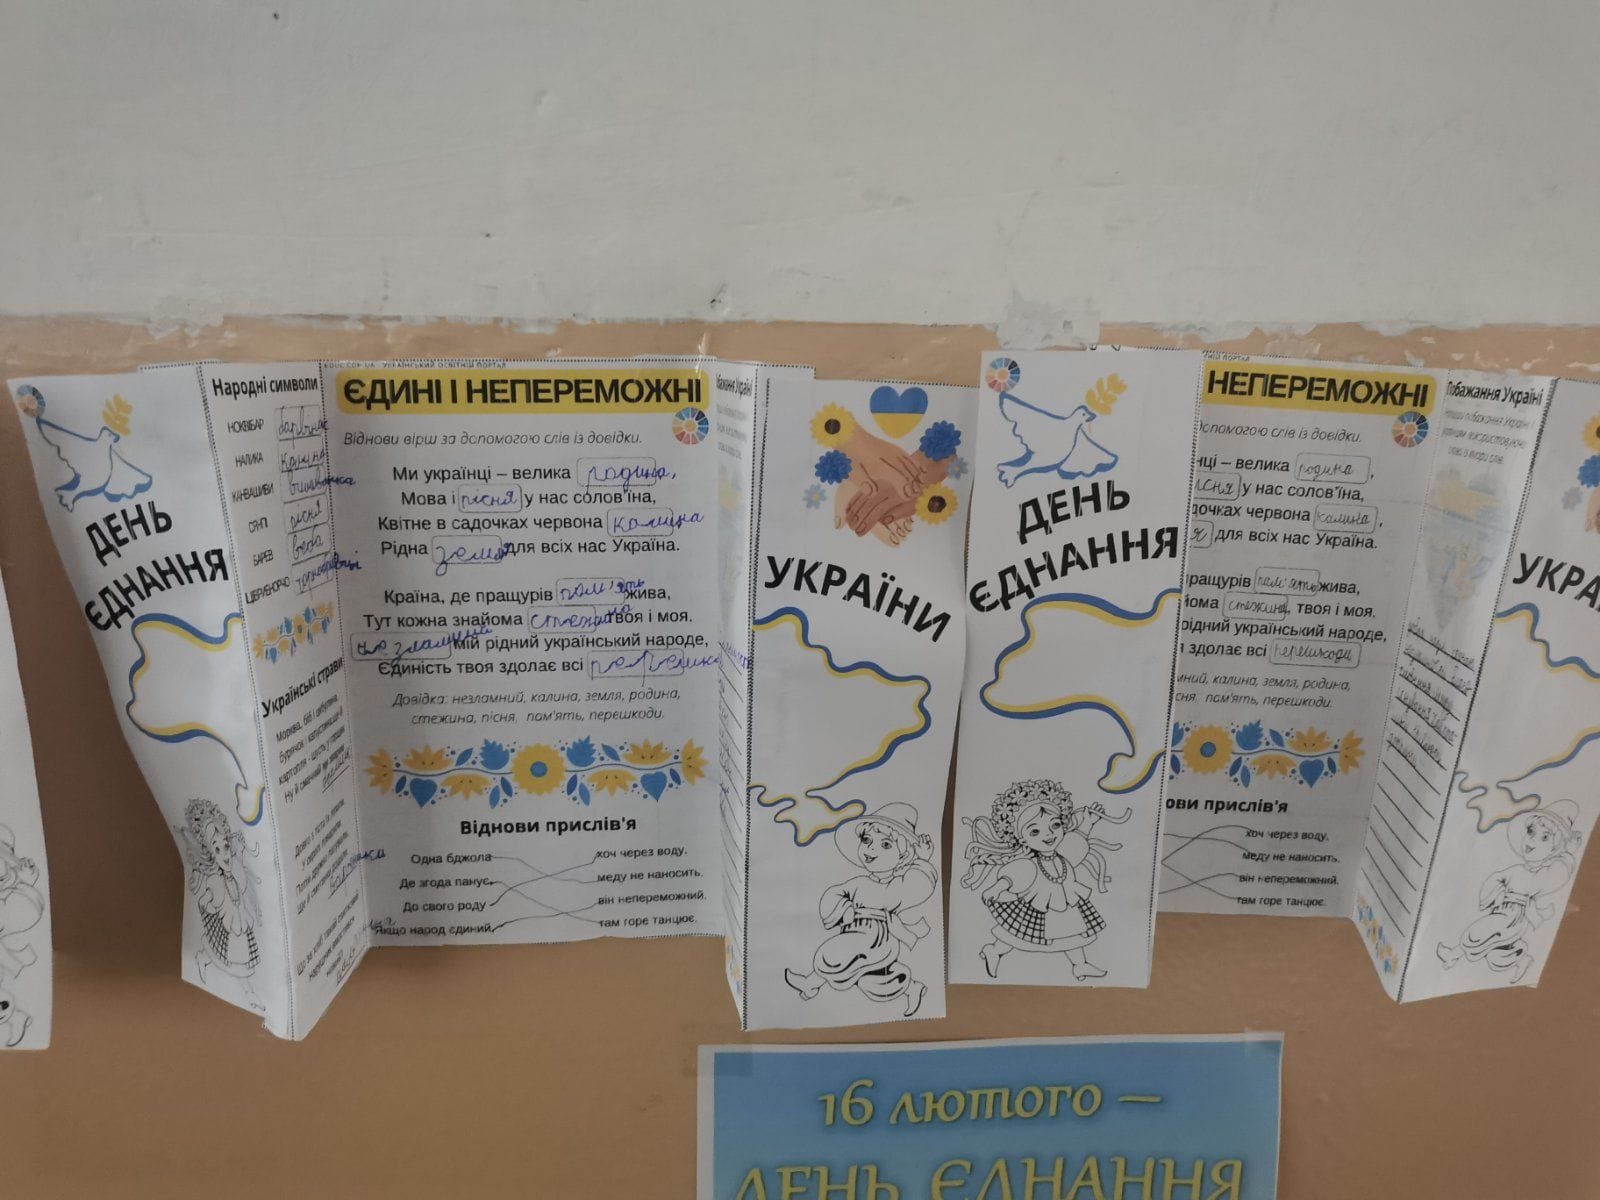 ДЕНЬ
ЄДНАННЯ
Народні символи
НОКВІБАР барвінок
НАЛИКА калина
КАНВАШИВИ вишиванка
СЯНПІ пісня
БАРЕВ верба
ЦІВРИБНОРЧО чорнобривці
Українські страви
УКРАЇНСЬКИЙ ОСВІТНІЙ ПОРТАЛ
ЄДИНІ І НЕПЕРЕМОЖНІ
Віднови вірш за допомогою слів із довідки.
Ми українці – велика родина,
Мова і пісня у нас солов'їна,
Квітне в садочках червона калина
Рідна земля для всіх нас Україна.
Країна, де пращурів пам'ять жива,
Тут кожна знайома стежина твоя і моя.
незламний мій рідний український народе,
Єдиність твоя здолає всі
Довідка: незламний, калина, земля, родина,
стежина, пісня, пам'ять, перешкоди.
Віднови прислів'я
Одна бджола хоч через воду.
Де згода панує, меду не наносить.
До свого роду він непереможний.
Якщо народ єдиний, там горе танцює.
бажання Україні
УКРАЇНИ
ДЕНЬ
ЄДНАННЯ
ПОРТАЛ
НЕПЕРЕМОЖНІ
допомогою слів із довідки.
нці – велика родина,
пісня у нас солов'їна,
дочках червона калина,
я для всіх нас Україна.
пращурів пам'ять жива,
йома стежина, твоя і моя.
рідний український народе,
я здолає всі перешкоди
мний, калина, земля, родина,
сня, пам'ять, перешкоди.
ови прислів'я
хоч через воду.
меду не наносить.
він непереможний.
там горе танцює.
Побажання Україні
УКРА
16 лютого –
ДЕНЬ ЄДНАННЯ